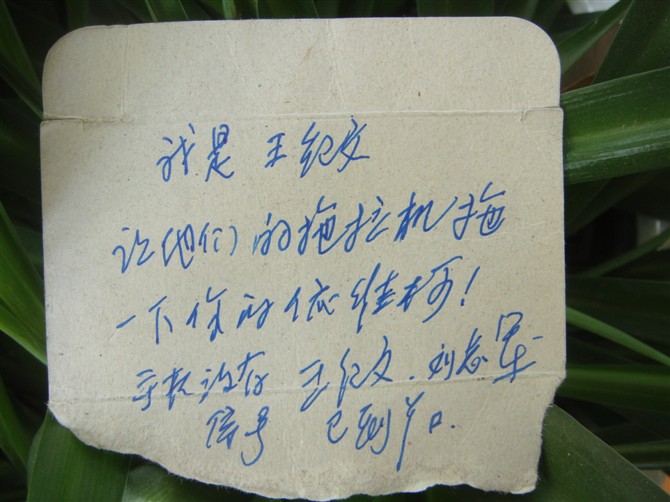 我是王纪文
让他们的拖拉机拖
一下你的依维柯！
手机没有 王纪文.刘志军
信号 已到羊口.